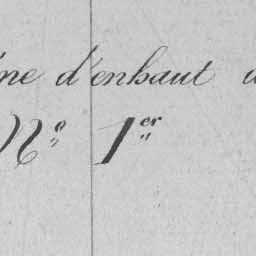 ne d'enhaut
N.° 1.er